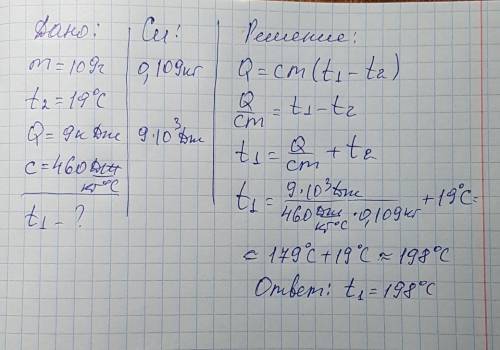 Дано:
m = 109г
t₂ = 19°C
Q = 9кДж
c = 460 Дж/кг°C
t₁ - ?
Си:
0,109кг
9·10³Дж
Решение:
Q = cm(t₁ - t₂)
Q/cm = t₁ - t₂
t₁ = Q/cm + t₂
t₁ = 9·10³Дж/460 Дж/кг°C · 0,109кг + 19°C =
= 179°C + 19°C ≈ 198°C
Ответ: t₁ = 198°C